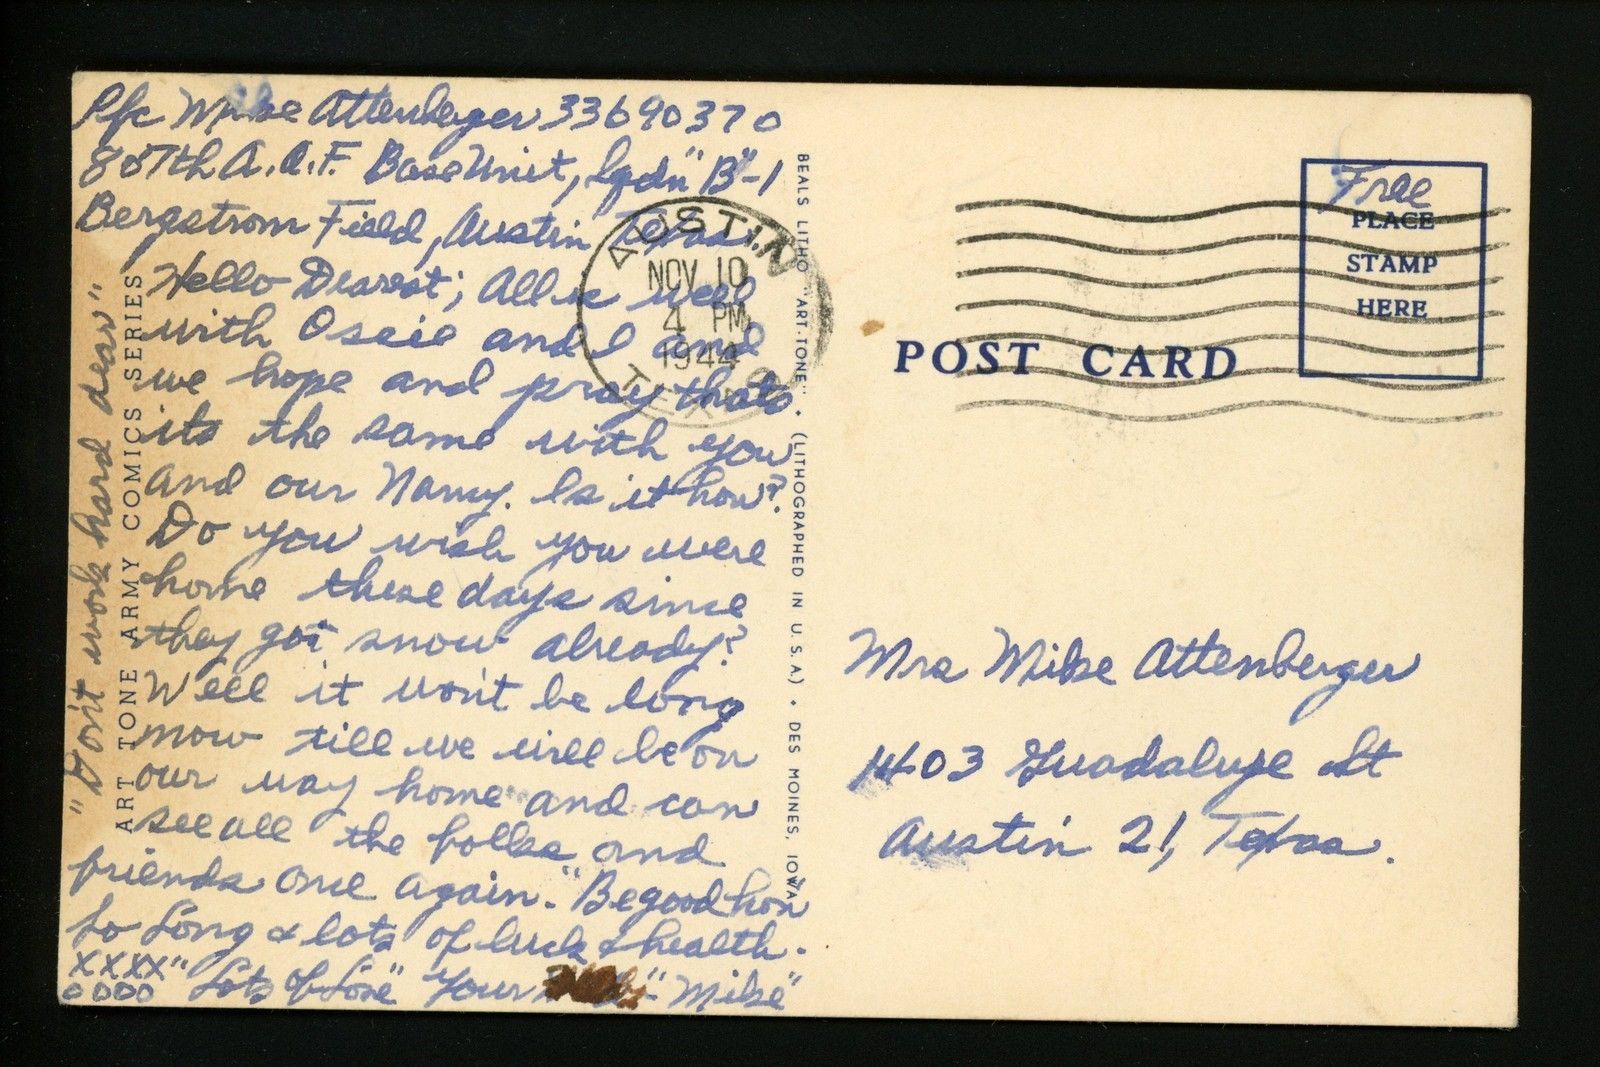 Pfc Mike Attenberger 33690370
807th A.A.F. Base Unit, Sqdn "B"-1
Bergstrom Field, Austin Texas.
Hello Dearest; All is well
with Ossie and I and
we hope and pray thats
its the same with you
and our Nancy. Is it hon?
Do you wish you were
home these days since
they got snow already?
Well it won't be long
now till we will be on
our way home and can
see all the folks and
friends once again. "Be good hon
So Long & lots of luck & health.
XXXX" Lots of Love" Your "Mike"
OOOO
"Don't work hard dear"
ART TONE ARMY COMICS SERIES
BEALS LITHO "ART-TONE" • (LITHOGRAPHED IN U.S.A.) • DES MOINES, IOWA
AUSTIN
NOV 10
4 PM
1944
TEXAS
Free
PLACE
STAMP
HERE
POST CARD
Mrs Mike Attenberger
1403 Guadalupe St
Austin 21, Texas.